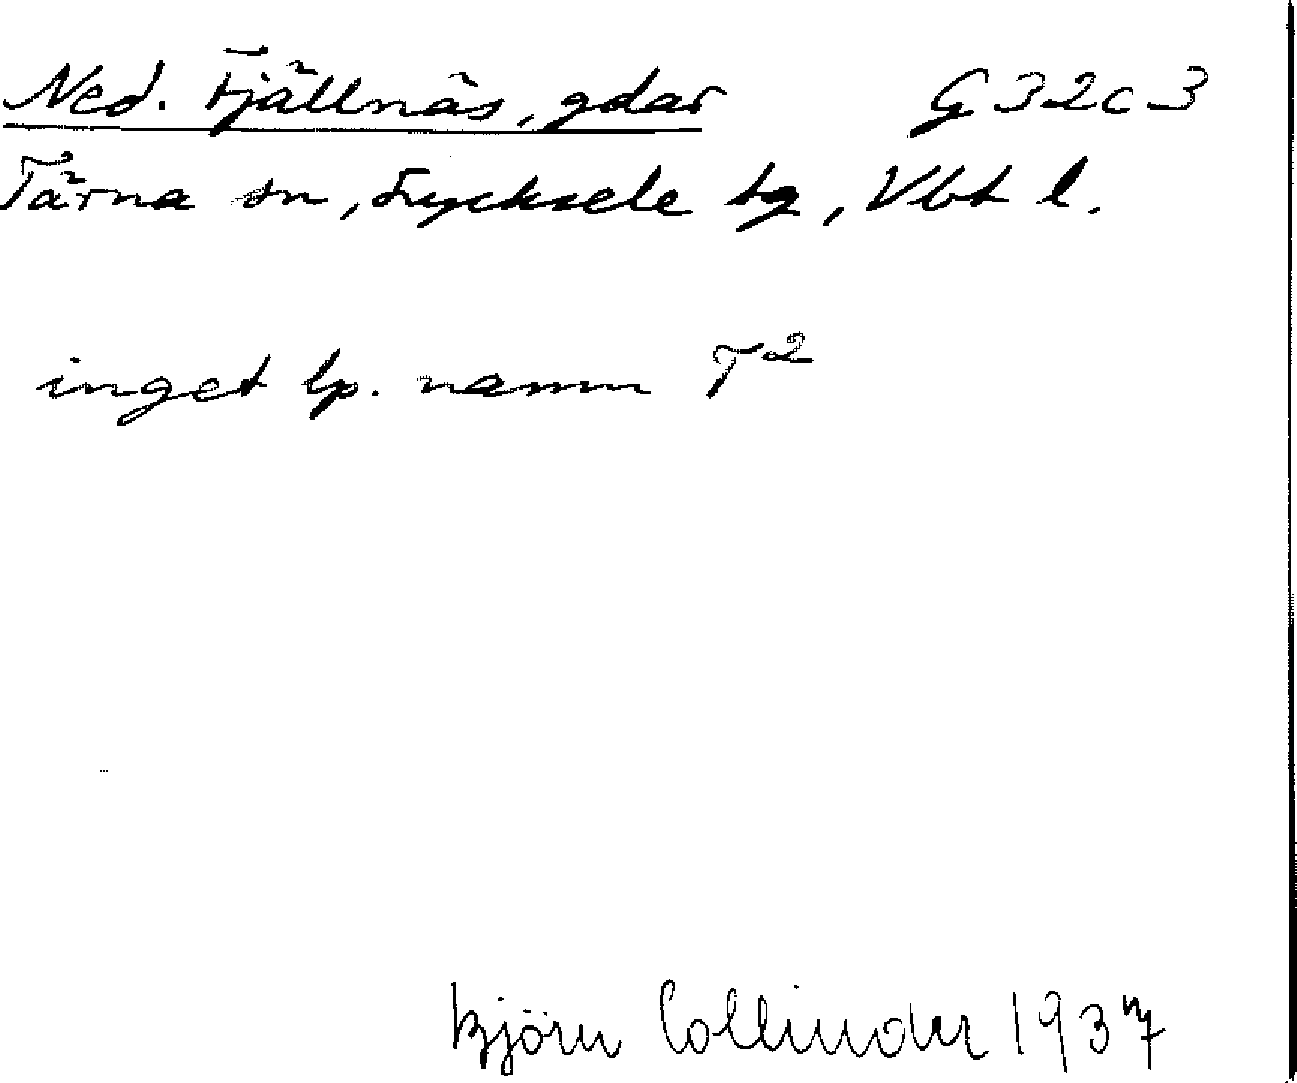 Ned. Fjällnäs, gdar G 32c3
Tärna sn, Lycksele tg, Vbt l.
inget lp. namn T2
Björn Collinder 1937